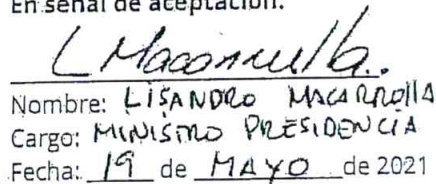 En señal de aceptación.
L Macarrulla.
Nombre: LISANDRO MACARRUllA
Cargo: MINISTRO PRESIDENCIA
Fecha: 19 de MAYO de 2021